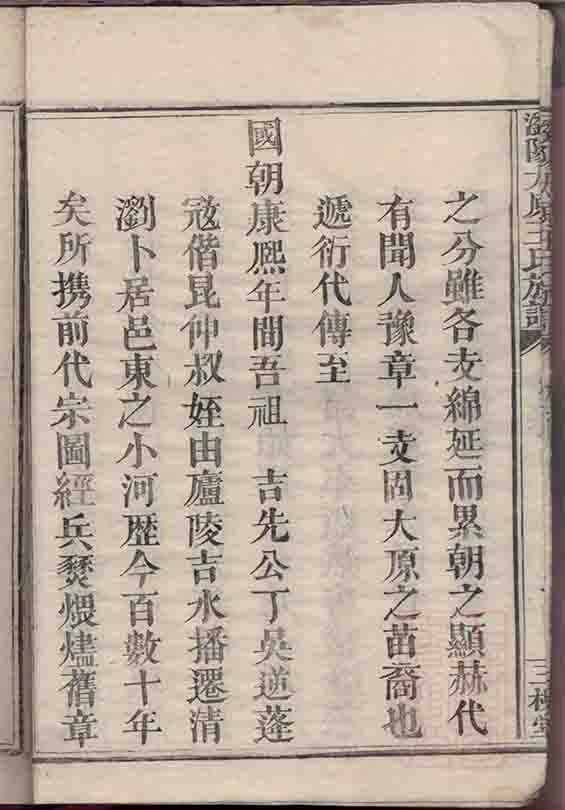 太原王氏族譜
三槐堂
之分雖各支綿延而累朝之顯赫代
有聞人豫章一支固大原之苗裔也
遞衍代傳至
國朝康熈年間吾祖 吉先公丁吳逆蓬
宼偕昆仲叔姪由廬陵吉水播遷清
瀏卜居邑東之小河歴今百數十年
矣所携前代宗圖經兵燹煨燼舊章